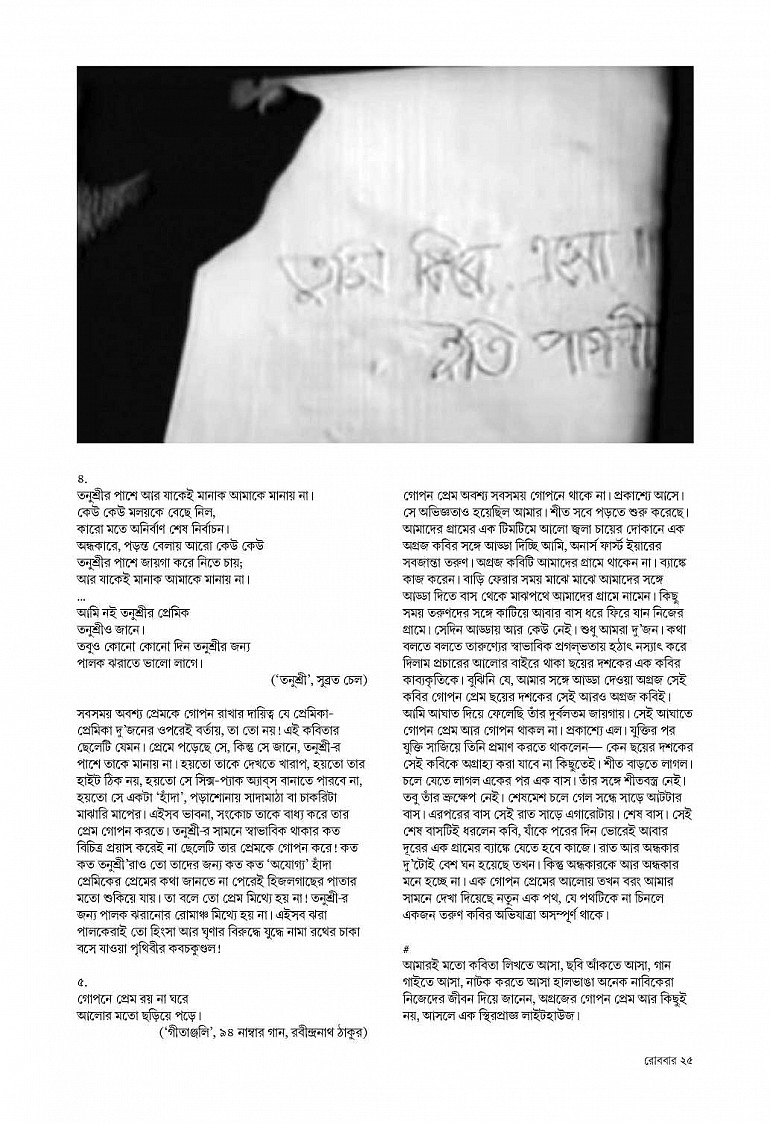 তুমি ফিরে এসো॥
ইতি পাগলী
৪.
তনুশ্রীর পাশে আর যাকেই মানাক আমাকে মানায় না।
কেউ কেউ মলয়কে বেছে নিল,
কারো মতে অনির্বাণ শেষ নির্বাচন।
অন্ধকারে, পড়ন্ত বেলায় আরো কেউ কেউ
তনুশ্রীর পাশে জায়গা করে নিতে চায়;
আর যাকেই মানাক আমাকে মানায় না।
...
আমি নই তনুশ্রীর প্রেমিক
তনুশ্রীও জানে।
তবুও কোনো কোনো দিন তনুশ্রীর জন্য
পালক ঝরাতে ভালো লাগে।
(‘তনুশ্রী’, সুব্রত চেল)
সবসময় অবশ্য প্রেমকে গোপন রাখার দায়িত্ব যে প্রেমিক-
প্রেমিকা দু’জনের ওপরেই বর্তায়, তা তো নয়! এই কবিতার
ছেলেটি যেমন। প্রেমে পড়েছে সে, কিন্তু সে জানে, তনুশ্রী-র
পাশে তাকে মানায় না। হয়তো তাকে দেখতে খারাপ, হয়তো তার
হাইট ঠিক নয়, হয়তো সে সিক্স-প্যাক অ্যাব্‌স বানাতে পারবে না,
হয়তো সে একটা ‘হাঁদা’, পড়াশোনায় সাদামাঠা বা চাকরিটা
মাঝারি মাপের। এইসব ভাবনা, সংকোচ তাকে বাধ্য করে তার
প্রেম গোপন করতে। তনুশ্রী-র সামনে স্বাভাবিক থাকার কত
বিচিত্র প্রয়াস করেই না ছেলেটি তার প্রেমকে গোপন করে! কত
কত তনুশ্রী’রাও তো তাদের জন্য কত কত ‘অযোগ্য’ হাঁদা
প্রেমিকের প্রেমের কথা জানতে না পেরেই হিজলগাছের পাতার
মতো শুকিয়ে যায়। তা বলে তো প্রেম মিথ্যে হয় না! তনুশ্রী-র
জন্য পালক ঝরানোর রোমাঞ্চ মিথ্যে হয় না। এইসব ঝরা
পালকেরাই তো হিংসা আর ঘৃণার বিরুদ্ধে যুদ্ধে নামা রথের চাকা
বসে যাওয়া পৃথিবীর কবচকুণ্ডল!
৫.
গোপনে প্রেম রয় না ঘরে
আলোর মতো ছড়িয়ে পড়ে।
(‘গীতাঞ্জলি’, ৯৪ নাম্বার গান, রবীন্দ্রনাথ ঠাকুর)
গোপন প্রেম অবশ্য সবসময় গোপনে থাকে না। প্রকাশ্যে আসে।
সে অভিজ্ঞতাও হয়েছিল আমার। শীত সবে পড়তে শুরু করেছে।
আমাদের গ্রামের এক টিমটিমে আলো জ্বলা চায়ের দোকানে এক
অগ্রজ কবির সঙ্গে আড্ডা দিচ্ছি আমি, অনার্স ফার্স্ট ইয়ারের
সবজান্তা তরুণ। অগ্রজ কবিটি আমাদের গ্রামে থাকেন না। ব্যাঙ্কে
কাজ করেন। বাড়ি ফেরার সময় মাঝে মাঝে আমাদের সঙ্গে
আড্ডা দিতে বাস থেকে মাঝপথে আমাদের গ্রামে নামেন। কিছু
সময় তরুণদের সঙ্গে কাটিয়ে আবার বাস ধরে ফিরে যান নিজের
গ্রামে। সেদিন আড্ডায় আর কেউ নেই। শুধু আমরা দু’জন। কথা
বলতে বলতে তারুণ্যের স্বাভাবিক প্রগল্‌ভতায় হঠাৎ নস্যাৎ করে
দিলাম প্রচারের আলোর বাইরে থাকা ছয়ের দশকের এক কবির
কাব্যকৃতিকে। বুঝিনি যে, আমার সঙ্গে আড্ডা দেওয়া অগ্রজ সেই
কবির গোপন প্রেম ছয়ের দশকের সেই আরও অগ্রজ কবিই।
আমি আঘাত দিয়ে ফেলেছি তাঁর দুর্বলতম জায়গায়। সেই আঘাতে
গোপন প্রেম আর গোপন থাকল না। প্রকাশ্যে এল। যুক্তির পর
যুক্তি সাজিয়ে তিনি প্রমাণ করতে থাকলেন— কেন ছয়ের দশকের
সেই কবিকে অগ্রাহ্য করা যাবে না কিছুতেই। শীত বাড়তে লাগল।
চলে যেতে লাগল একের পর এক বাস। তাঁর সঙ্গে শীতবস্ত্র নেই।
তবু তাঁর ভ্রূক্ষেপ নেই। শেষমেশ চলে গেল সন্ধে সাড়ে আটটার
বাস। এরপরের বাস সেই রাত সাড়ে এগারোটায়। শেষ বাস। সেই
শেষ বাসটিই ধরলেন কবি, যাঁকে পরের দিন ভোরেই আবার
দূরের এক গ্রামের ব্যাঙ্কে যেতে হবে কাজে। রাত আর অন্ধকার
দু’টোই বেশ ঘন হয়েছে তখন। কিন্তু অন্ধকারকে আর অন্ধকার
মনে হচ্ছে না। এক গোপন প্রেমের আলোয় তখন বরং আমার
সামনে দেখা দিয়েছে নতুন এক পথ, যে পথটিকে না চিনলে
একজন তরুণ কবির অভিযাত্রা অসম্পূর্ণ থাকে।
#
আমারই মতো কবিতা লিখতে আসা, ছবি আঁকতে আসা, গান
গাইতে আসা, নাটক করতে আসা হালভাঙা অনেক নাবিকেরা
নিজেদের জীবন দিয়ে জানেন, অগ্রজের গোপন প্রেম আর কিছুই
নয়, আসলে এক স্থিরপ্রাজ্ঞ লাইটহাউজ।
রোববার ২৫